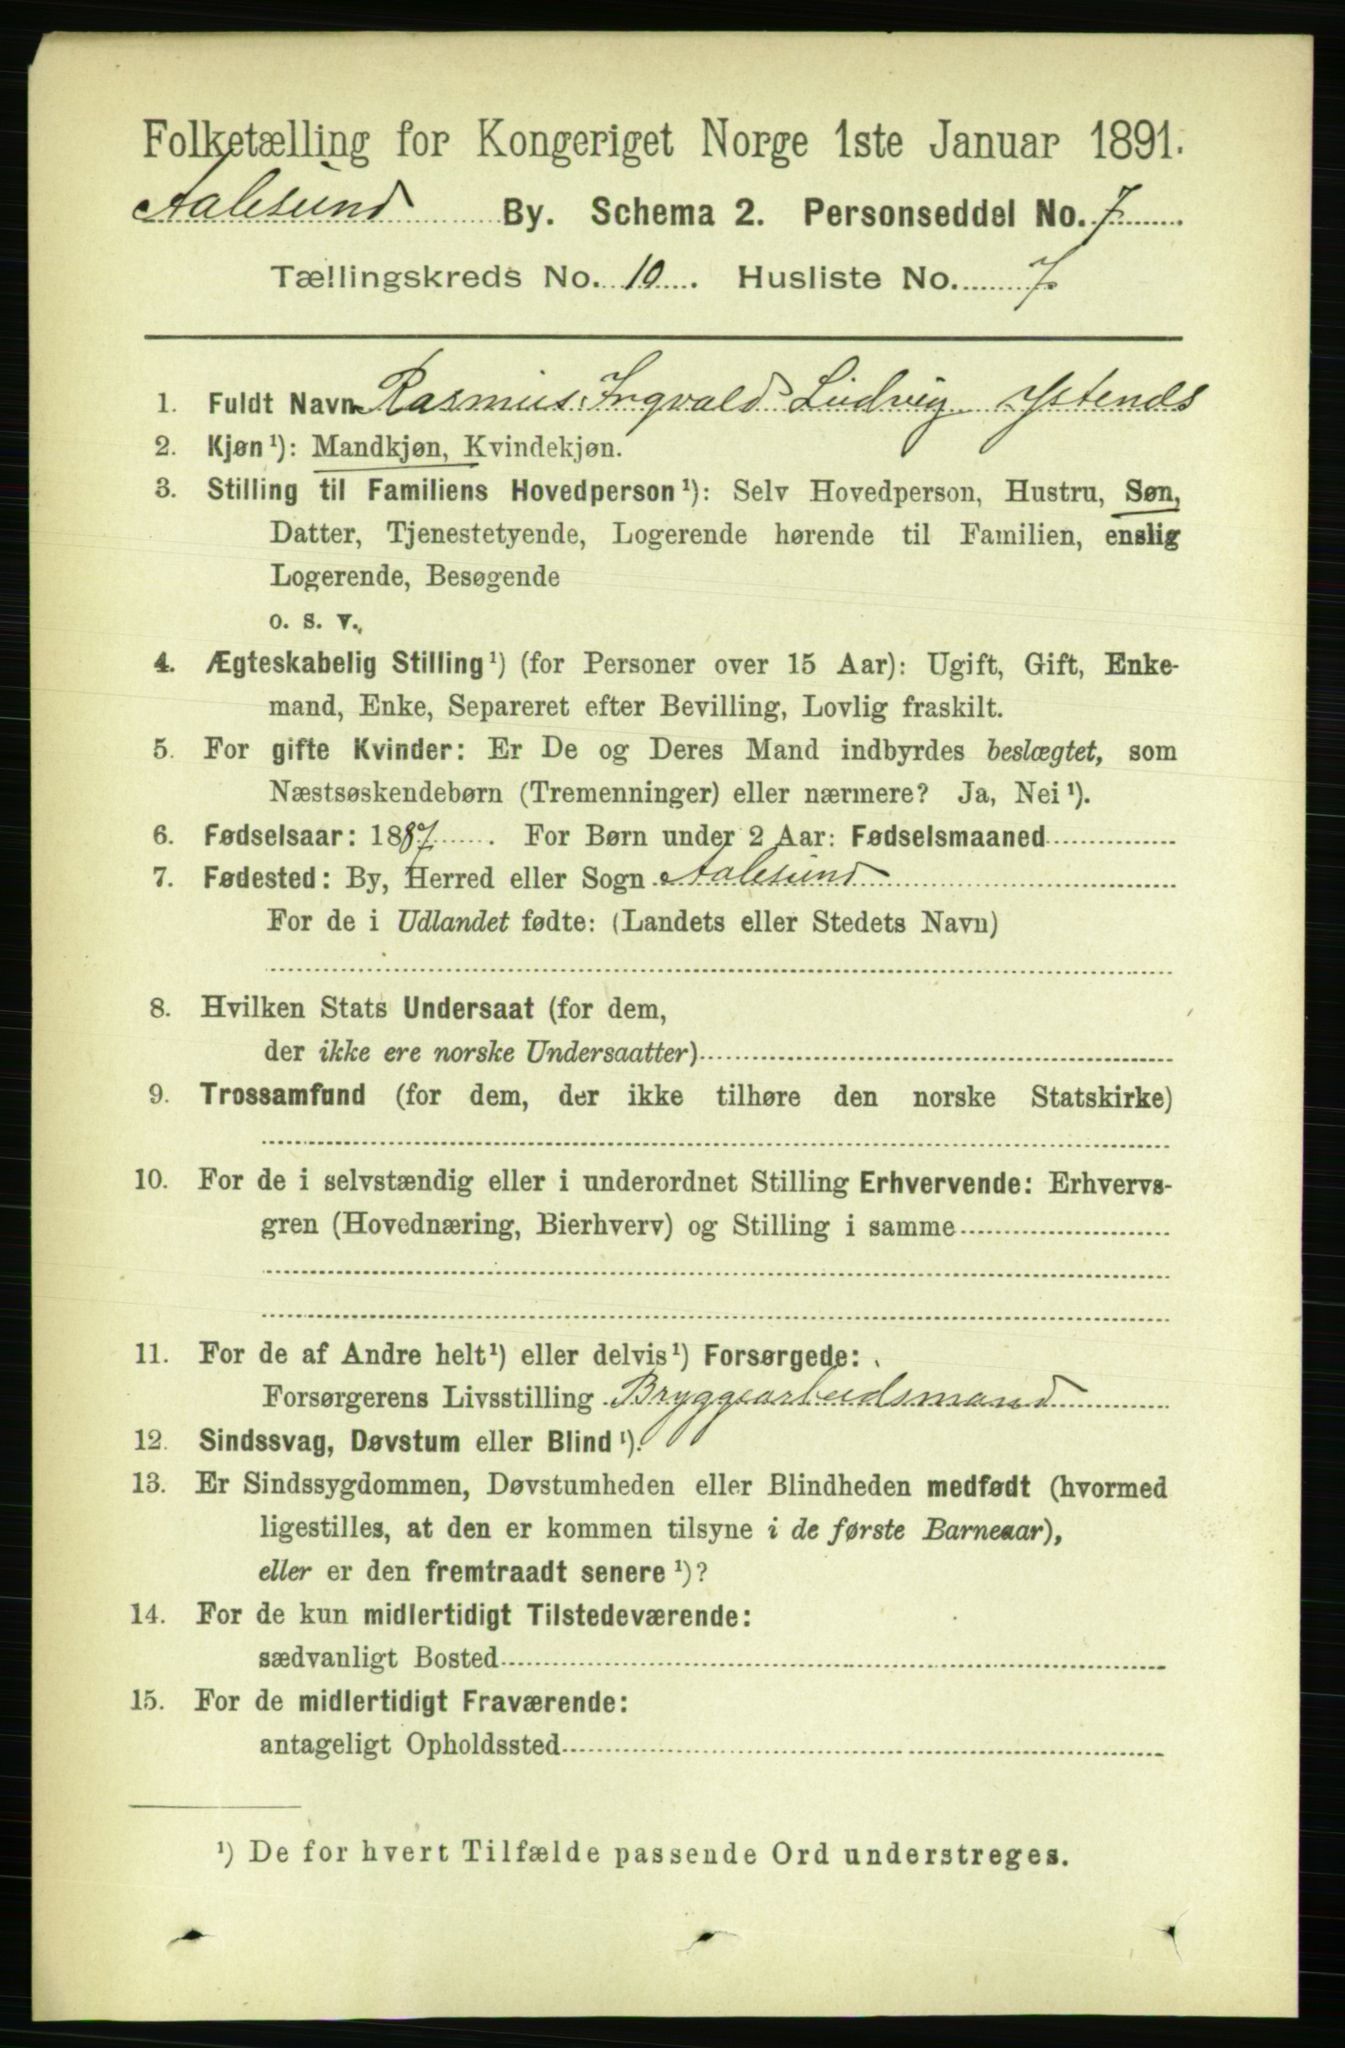 Folketælling for Kongeriget Norge 1ste Januar 1891.
Aalesund By. Schema 2. Personseddel No. 7
Tællingskreds No. 10. Husliste No. 7
1. Fuldt Navn Rasmus Ingvald Ludvig Ystenes
2. Kjøn¹): Mandkjøn, Kvindekjøn.
3. Stilling til Familiens Hovedperson¹): Selv Hovedperson, Hustru, Søn,
Datter, Tjenestetyende, Logerende hørende til Familien, enslig
Logerende, Besøgende
o. s. v.
4. Ægteskabelig Stilling¹) (for Personer over 15 Aar): Ugift, Gift, Enke-
mand, Enke, Separeret efter Bevilling, Lovlig fraskilt.
5. For gifte Kvinder: Er De og Deres Mand indbyrdes beslægtet, som
Næstsøskendebørn (Tremenninger) eller nærmere? Ja, Nei¹).
6. Fødselsaar: 1887. For Børn under 2 Aar: Fødselsmaaned
7. Fødested: By, Herred eller Sogn Aalesund
For de i Udlandet fødte: (Landets eller Stedets Navn)
8. Hvilken Stats Undersaat (for dem,
der ikke ere norske Undersaatter)
9. Trossamfund (for dem, der ikke tilhøre den norske Statskirke)
10. For de i selvstændig eller i underordnet Stilling Erhvervende: Erhvervs-
gren (Hovednæring, Bierhverv) og Stilling i samme
11. For de af Andre helt¹) eller delvis¹) Forsørgede:
Forsørgerens Livsstilling Bryggearbeidsmand
12. Sindssvag, Døvstum eller Blind¹).
13. Er Sindssygdommen, Døvstumheden eller Blindheden medfødt (hvormed
ligestilles, at den er kommen tilsyne i de første Barneaar),
eller er den fremtraadt senere¹)?
14. For de kun midlertidigt Tilstedeværende:
sædvanligt Bosted
15. For de midlertidigt Fraværende:
antageligt Opholdssted
¹) De for hvert Tilfælde passende Ord understreges.